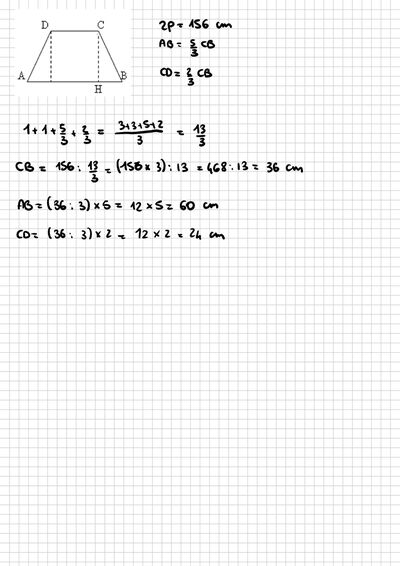 D C
A H B
2p = 156 cm
AB = 5/3 CB
CD = 2/3 CB
1 + 1 + 5/3 + 2/3 = 3+3+5+2/3 = 13/3
CB = 156 : 13/3 = (156 × 3) : 13 = 468 : 13 = 36 cm
AB = (36 : 3) × 5 = 12 × 5 = 60 cm
CD = (36 : 3) × 2 = 12 × 2 = 24 cm